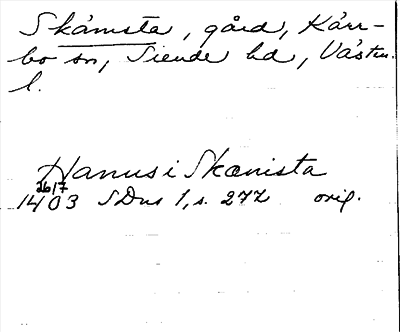 Skämsta, gård, Kärr-
bo sn, Siende hd, Västm.
l.
Hanus i Skænista
26/7
1403 SDns 1, s. 277 orig.